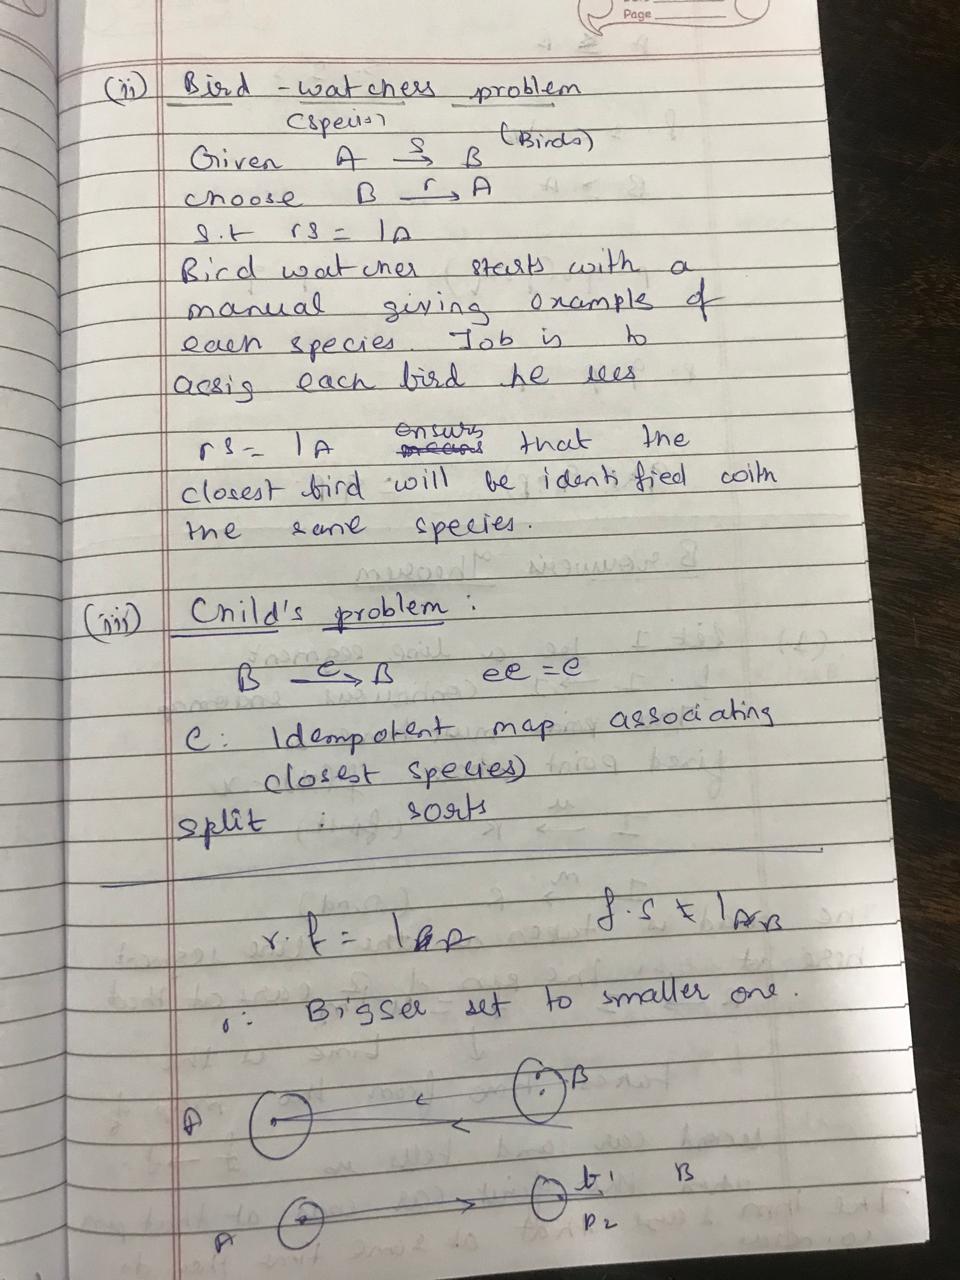 Page
(ii) Bird - watchers problem
(species)
Given A s→ B (Birds)
choose B r→ A
s.t rs = 1A
Bird watcher starts with a
manual giving example of
each species. Job is to
assig each bird he sees
rs = 1A ensurs that the
closest bird will be identified with
the same species.
(iii) Child's problem :
B e→ B ee = e
e: Idempotent map associating
closest species)
split : sorts
r.f = 1A f.s ≠ 1B
r: Bigger set to smaller one.
A B
A b1 B
b2